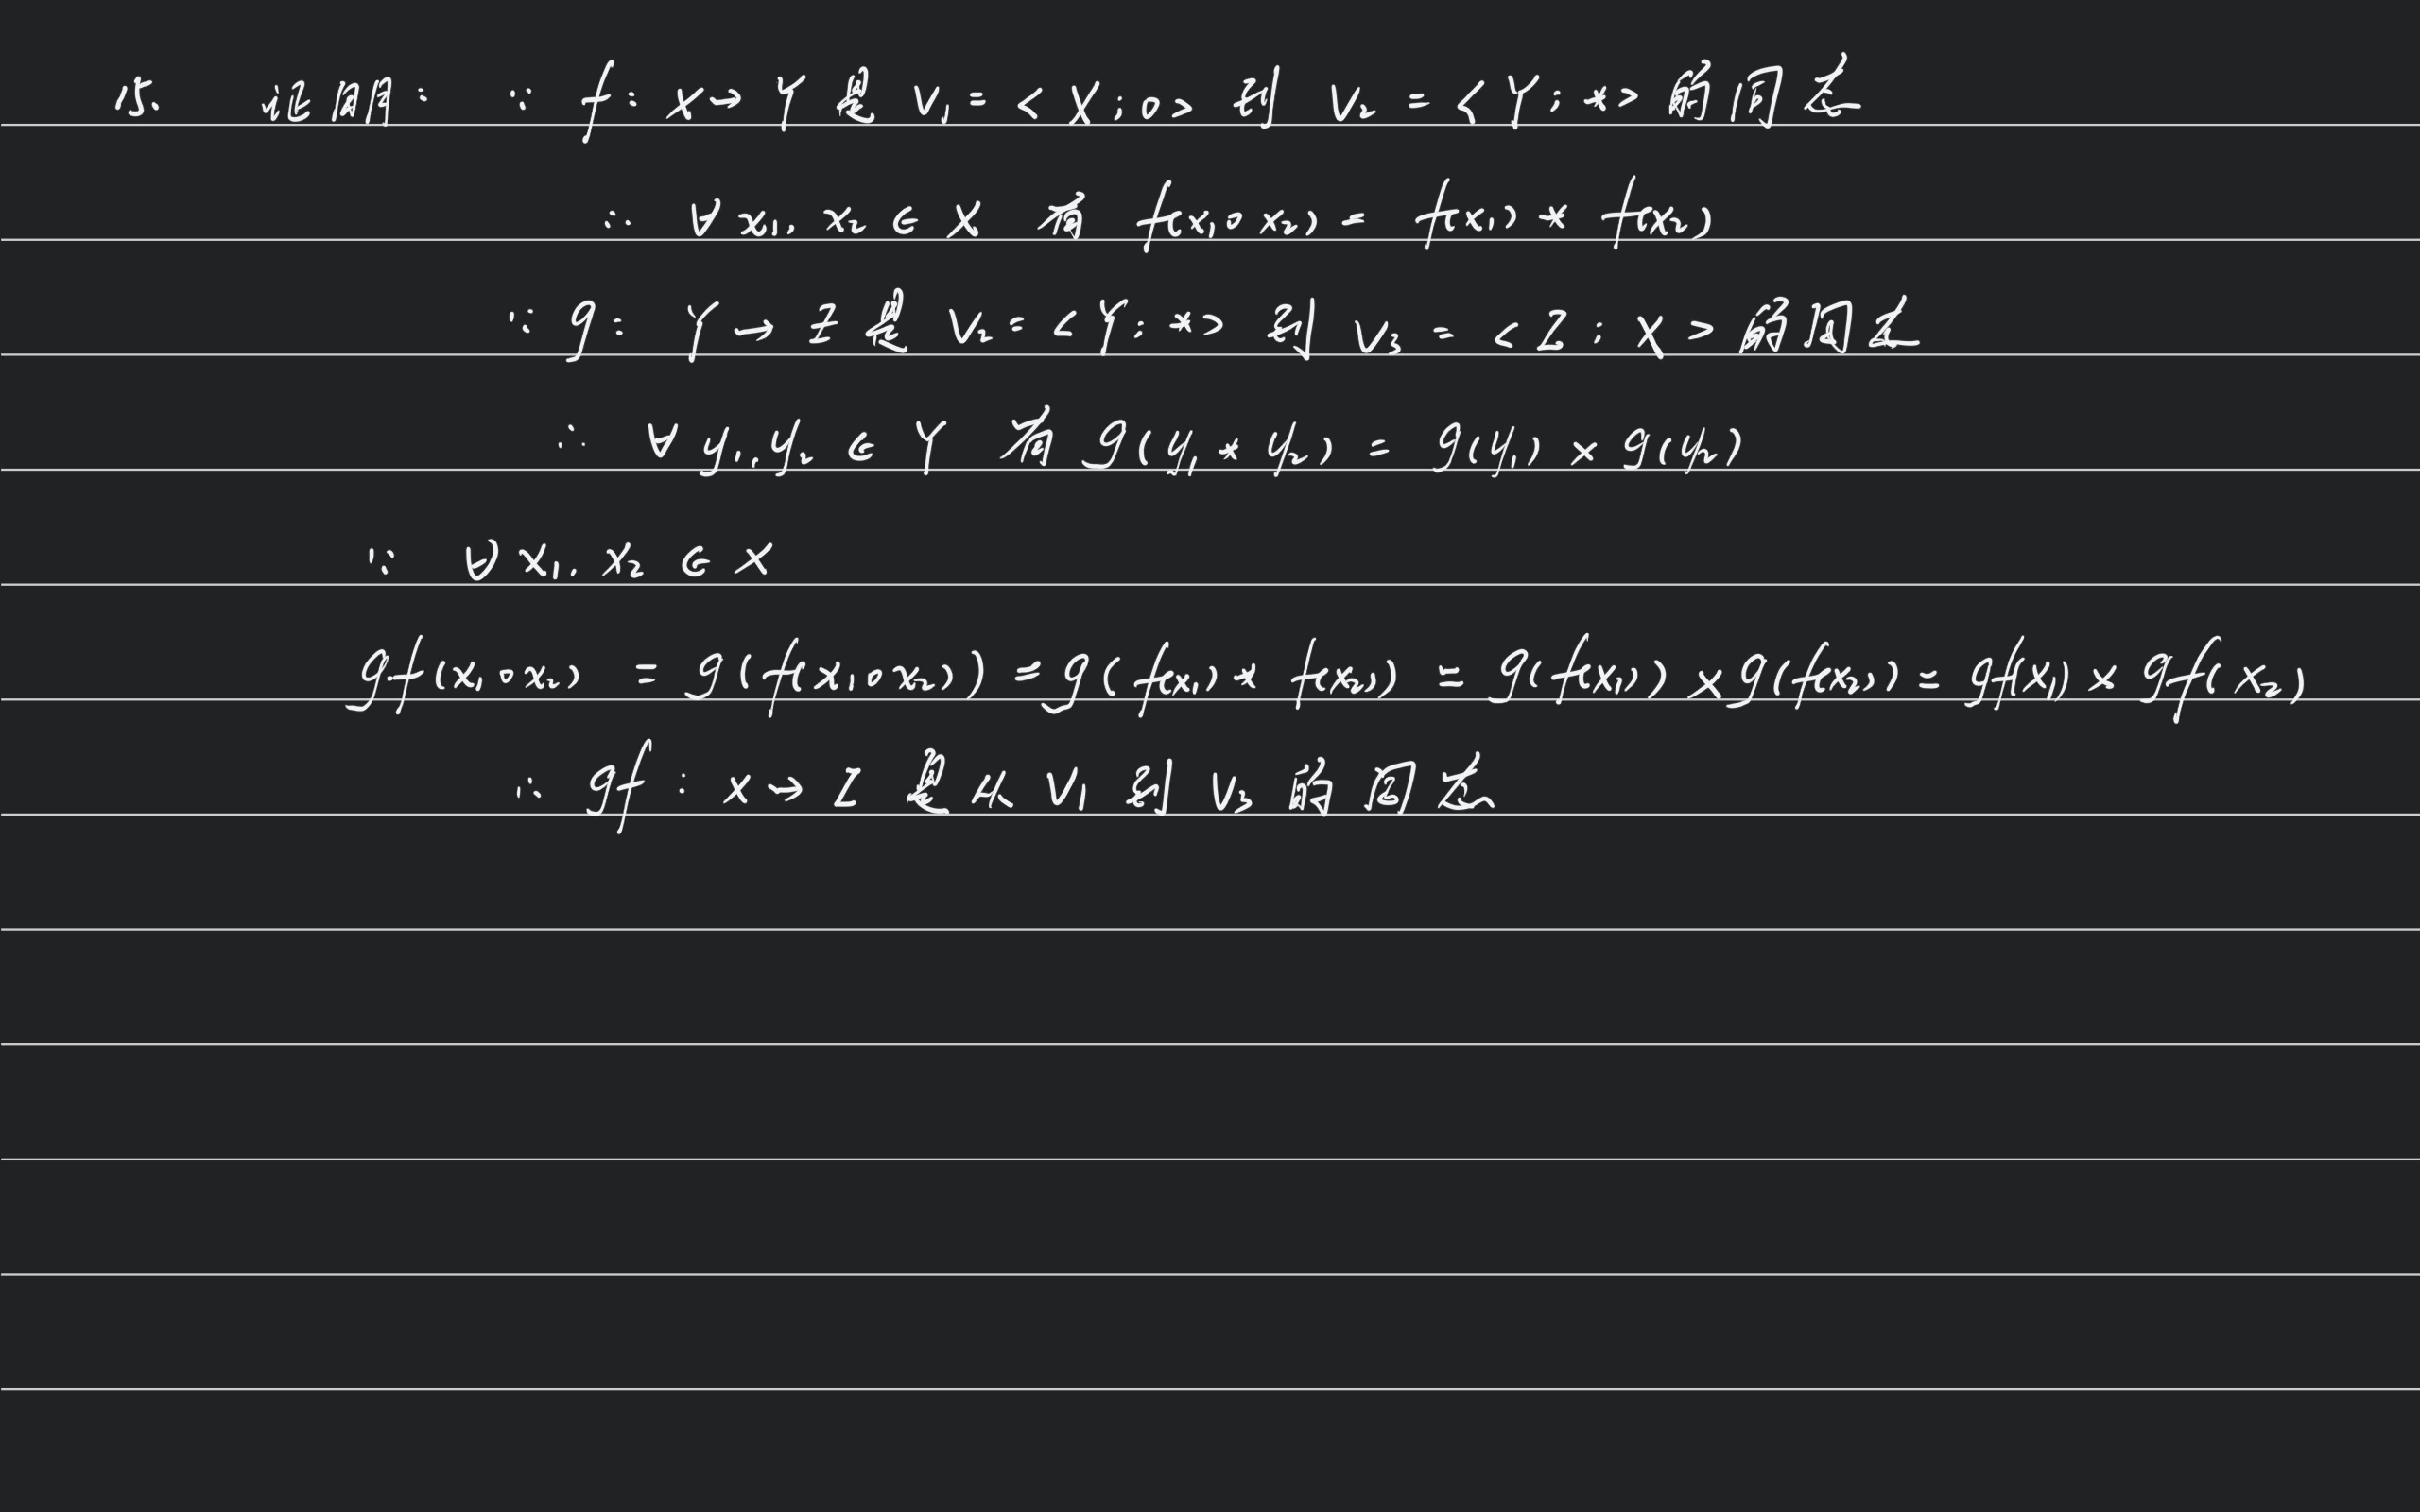 15. 证明: ∵ f: X→Y 是 V₁=<X;∘> 到 V₂=<Y;*> 的同态
∴ ∀x₁,x₂∈X 有 f(x₁∘x₂)=f(x₁)*f(x₂)
∵ g: Y→Z 是 V₂=<Y;*> 到 V₃=<Z;×> 的同态
∴ ∀y₁,y₂∈Y 有 g(y₁*y₂)=g(y₁)×g(y₂)
∵ ∀x₁,x₂∈X
gf(x₁∘x₂)=g(f(x₁∘x₂))=g(f(x₁)*f(x₂))=g(f(x₁))×g(f(x₂))=gf(x₁)×gf(x₂)
∴ gf: X→Z 是从 V₁ 到 V₃ 的同态